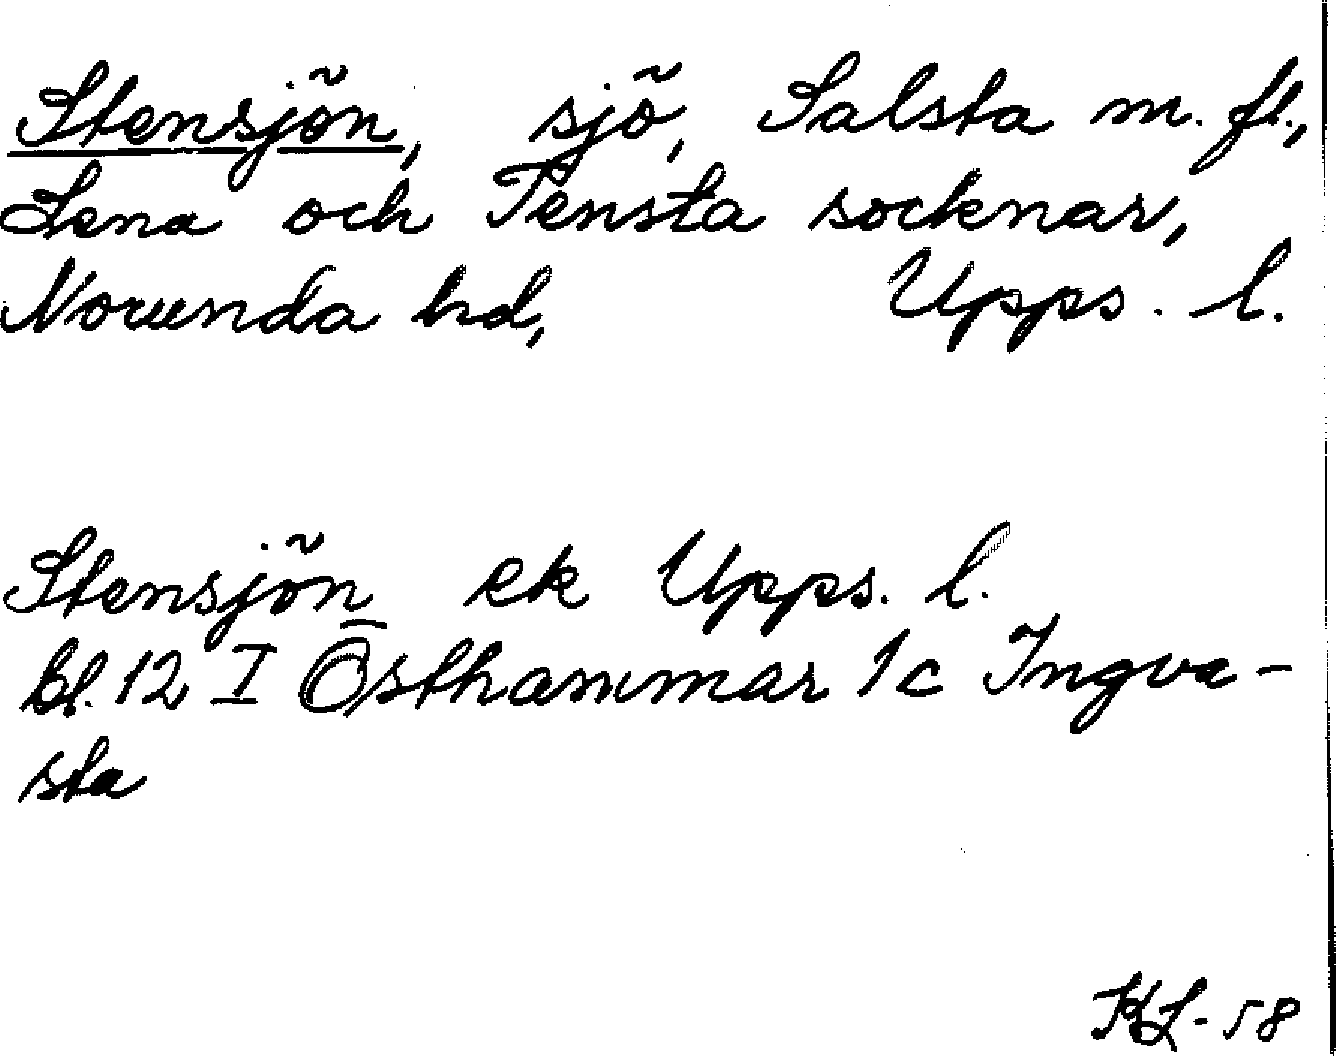 Stensjön, sjö, Salsta m. fl.,
Lena och Tensta socknar,
Norunda hd, Upps. l.
Stensjön ek Upps. l.
bl. 12 I Östhammar 1c Ingva-
sta
KL-58